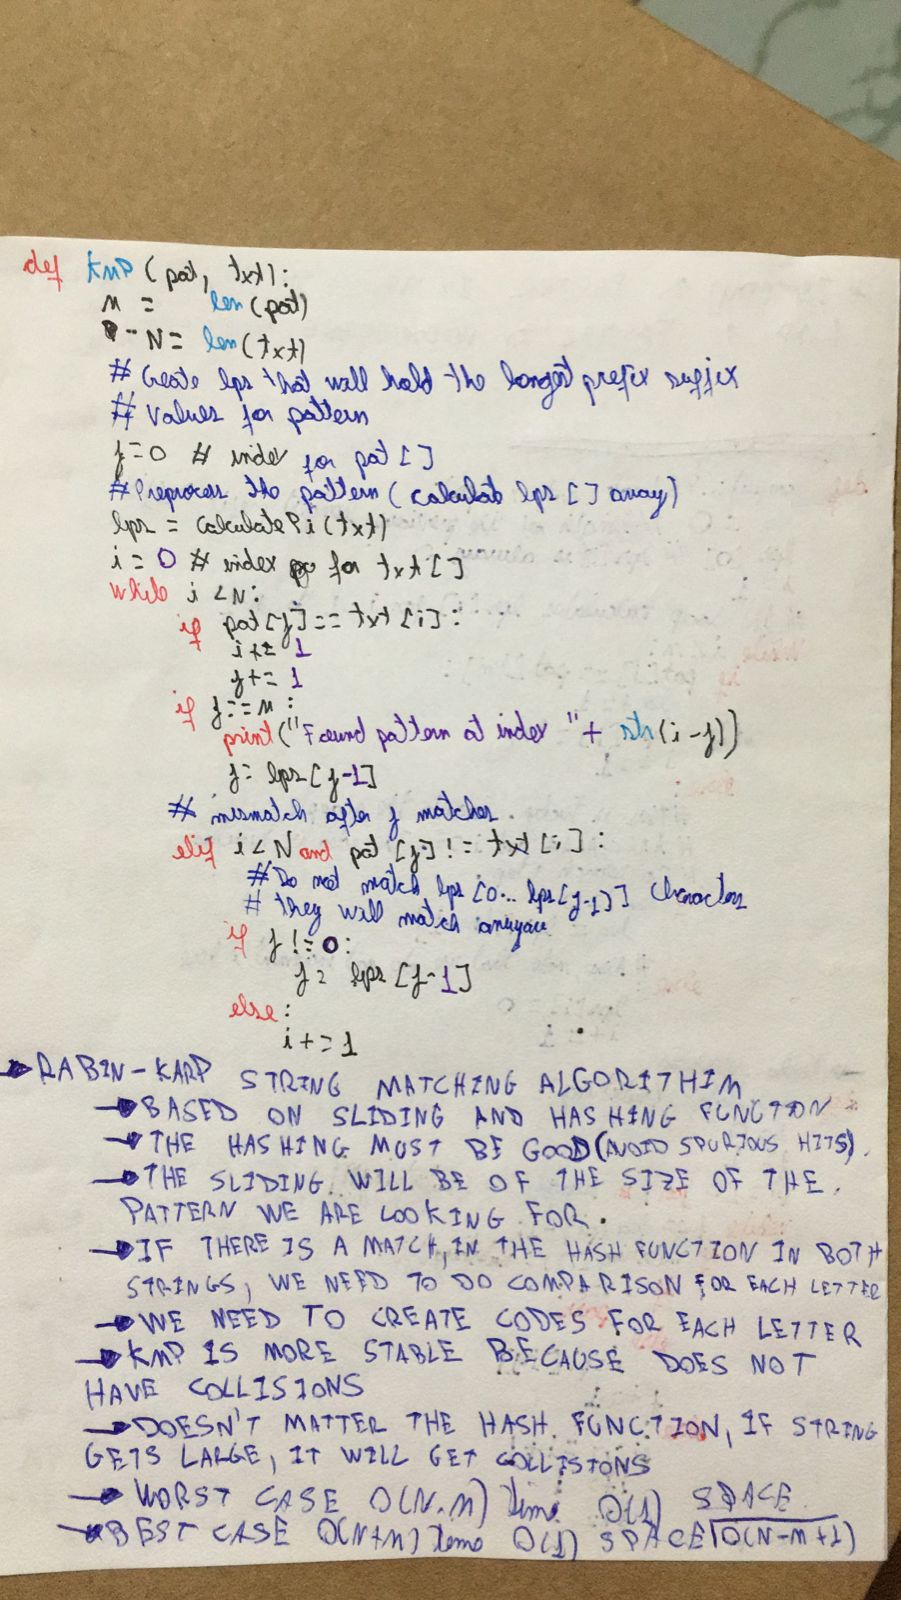 def KMP (pat, txt):
M = len(pat)
N = len(txt)
# Create lps that will hold the longest prefix suffix
# Values for pattern
j=0 # index for pat []
# Preprocess the pattern (calculate lps [] array)
lps = calculatePi(txt)
i = 0 # index for txt[]
while i < N:
if pat[j] == txt[i]:
i += 1
j += 1
if j == M:
print("Found pattern at index " + str(i-j))
j = lps[j-1]
# mismatch after j matches
elif i < N and pat[j] != txt[i]:
# Do not match lps [0... lps[j-1]] characters
# they will match anyway
if j != 0:
j = lps [j-1]
else:
i += 1
→ RABIN-KARP STRING MATCHING ALGORITHIM
→ BASED ON SLIDING AND HASHING FUNCTION
→ THE HASHING MUST BE GOOD (AVOID SPURIOUS HITS).
→ THE SLIDING WILL BE OF THE SIZE OF THE
PATTERN WE ARE LOOKING FOR.
→ IF THERE IS A MATCH, IN THE HASH FUNCTION IN BOTH
STRINGS, WE NEED TO DO COMPARISON FOR EACH LETTER
→ WE NEED TO CREATE CODES FOR EACH LETTER
→ KMP IS MORE STABLE BECAUSE DOES NOT
HAVE COLLISIONS
→ DOESN'T MATTER THE HASH FUNCTION, IF STRING
GETS LARGE, IT WILL GET COLLISIONS
→ WORST CASE O(N.M) time O(1) SPACE
→ BEST CASE O(N+M) time O(1) SPACE O(N-M+1)